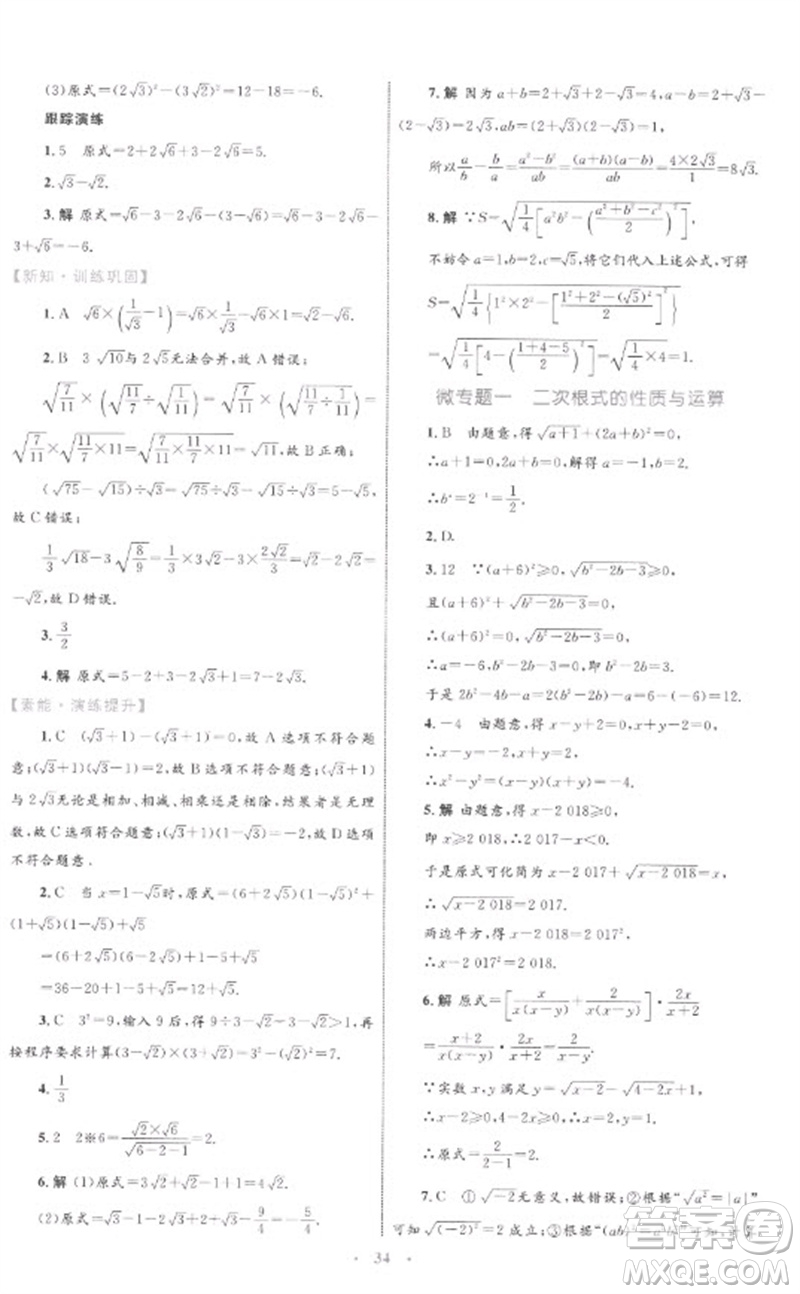 (3)原式=(2√3)²-(3√2)²=12-18=-6.
跟踪演练
1.5 原式=2+2√6+3-2√6=5.
2.√3-√2.
3.解 原式=√6-3-2√6-(√6-3-2√6+
3+√6=-6.
【新知·训练巩固】
1.A √6×(1/√3-1)=√6×1/√3-√6×1=√2-√6.
2.B 3√10与2√5无法合并,故A错误;
√(7/11)×(√(11/7)÷√(1/11))=√(7/11)×√(11/7×11)
=√(7/11×11/7×11)=√11,故B正确;
(√75-√15)÷√3=√75÷√3-√15÷√3=5-√5,
故C错误;
1/3√18-3√(8/9)=1/3×3√2-3×2√2/3=√2-2√2=
-√2,故D错误.
3.3/2
4.解 原式=5-2+3-2√3+1=7-2√3.
【素能·演练提升】
1.C (√3+1)-(√3+1)=0,故A选项不符合题
意;(√3+1)(√3-1)=2,故B选项不符合题意;(√3+1)
与2√3无论是相加、相减、相乘还是相除,结果都是无理
数,故C选项符合题意;(√3+1)(1-√3)=-2,故D选项
不符合题意.
2.C 当x=1-√5时,原式=(6+2√5)(1-√5)²+
(1+√5)(1-√5)-√5
=(6+2√5)(6-2√5)+1-5-√5
=36-20+1-5-√5=12-√5.
3.C 3²=9,输入9后,得9÷3-√2=3-√2>1,再
按程序要求计算(3-√2)×(3+√2)=3²-(√2)²=7.
4.1/3
5.2 2※6=√2×√6/√(6-2-1)=2.
6.解 (1)原式=3√2-2√2+1+1=√2+2.
(2)原式=√3-1-2√3+2+√3-9/4=-5/4.
7.解 因为a+b=2+√3+2-√3=4,a-b=2+√3-
(2-√3)=2√3,ab=(2+√3)(2-√3)=1,
所以a/b-b/a=(a²-b²)/ab=(a+b)(a-b)/ab=4×2√3/1=8√3.
8.解 ∵S=√(1/4[a²b²-((a²+b²-c²)/2)²]),
不妨令a=1,b=2,c=√5,将它们代入上述公式,可得
S=√(1/4{1²×2²-[(1²+2²-(√5)²)/2]²})
=√(1/4[4-((1+4-5)/2)²])=√(1/4×4)=1.
微专题一 二次根式的性质与运算
1.B 由题意,得√(a+1)+(2a+b)²=0,
∴a+1=0,2a+b=0,解得a=-1,b=2.
∴bᵃ=2⁻¹=1/2.
2.D.
3.12 ∵(a+6)²≥0,√(b²-2b-3)≥0,
且(a+6)²+√(b²-2b-3)=0,
∴a+6=0,√(b²-2b-3)=0,即b²-2b=3.
于是2b²-4b-a=2(b²-2b)-a=6-(-6)=12.
4.-4 由题意,得x-y=0,x+y-2=0,
∴x²-y²=(x-y)(x+y)=-4.
5.解 由题意,得x-2 018≥0,
即x≥2 018,∴2 017-x<0.
于是原式可化简为x-2 017+√(x-2 018)=x.
∴√(x-2 018)=2 017.
两边平方,得x-2 018=2 017².
∴x-2 017²=2 018.
6.解 原式=[x/x(x-y)+2/x(x-y)]·2x/(x+2)
=(x+2)/x(x-y)·2x/(x+2)=2/(x-y).
∵实数x,y满足y=√(x-2)-√(4-2x)+1,
∴x-2≥0,4-2x≥0,∴x=2,y=1.
∴原式=2/(2-1)=2.
7.C ①√-2无意义,故错误;②根据“√a²=|a|”
可知√(-2)²=2成立;③根据“(ab)²=a²b²”可知,计算
·34·
答案圈